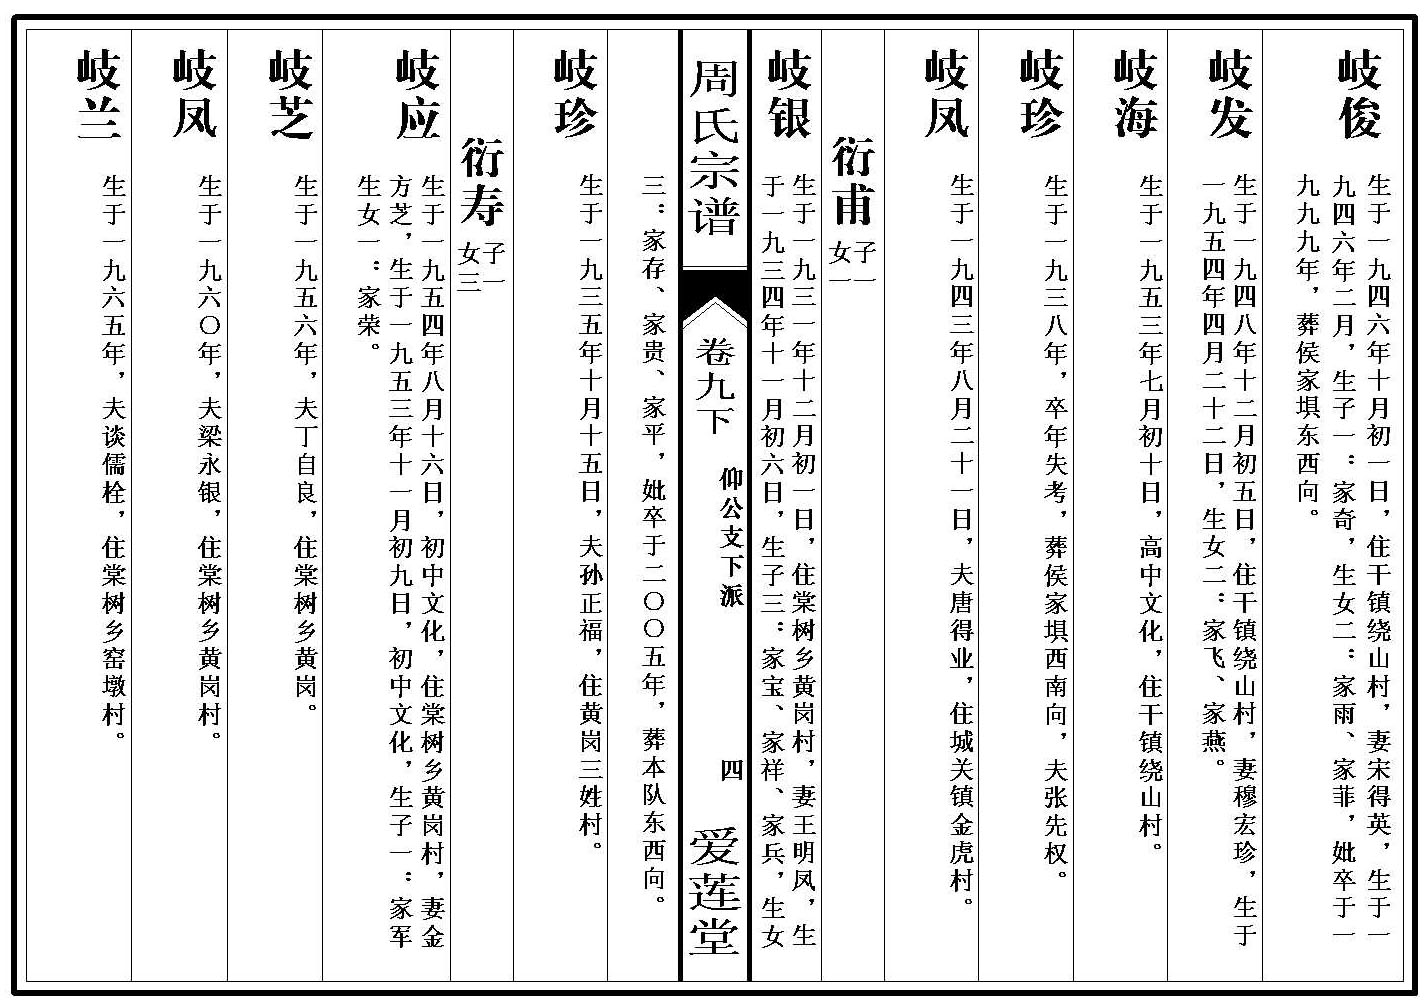 岐俊
生于一九四六年十月初一日，住干镇绕山村，妻宋得英，生于一
九四六年二月，生子一：家奇，生女二：家雨、家菲，妣卒于一
九九九年，葬侯家埧东西向。
岐发
生于一九四八年十二月初五日，住干镇绕山村，妻穆宏珍，生于
一九五四年四月二十二日，生女二：家飞、家燕。
岐海
生于一九五三年七月初十日，高中文化，住干镇绕山村。
岐珍
生于一九三八年，卒年失考，葬侯家埧西南向，夫张先权。
岐凤
生于一九四三年八月二十一日，夫唐得业，住城关镇金虎村。
衍甫
子一
女一
岐银
生于一九三一年十二月初一日，住棠树乡黄岗村，妻王明凤，生
于一九三四年十一月初六日，生子三：家宝、家祥、家兵，生女
周氏宗谱
卷九下
仰公支下派
四
爱莲堂
三：家存、家贵、家平，妣卒于二〇〇五年，葬本队东西向。
岐珍
生于一九三五年十月十五日，夫孙正福，住黄岗三姓村。
衍寿
子一
女三
岐应
生于一九五四年八月十六日，初中文化，住棠树乡黄岗村，妻金
方芝，生于一九五三年十一月初九日，初中文化，生子一：家军
生女一：家荣。
岐芝
生于一九五六年，夫丁自良，住棠树乡黄岗。
岐凤
生于一九六〇年，夫梁永银，住棠树乡黄岗村。
岐兰
生于一九六五年，夫谈儒栓，住棠树乡窑墩村。